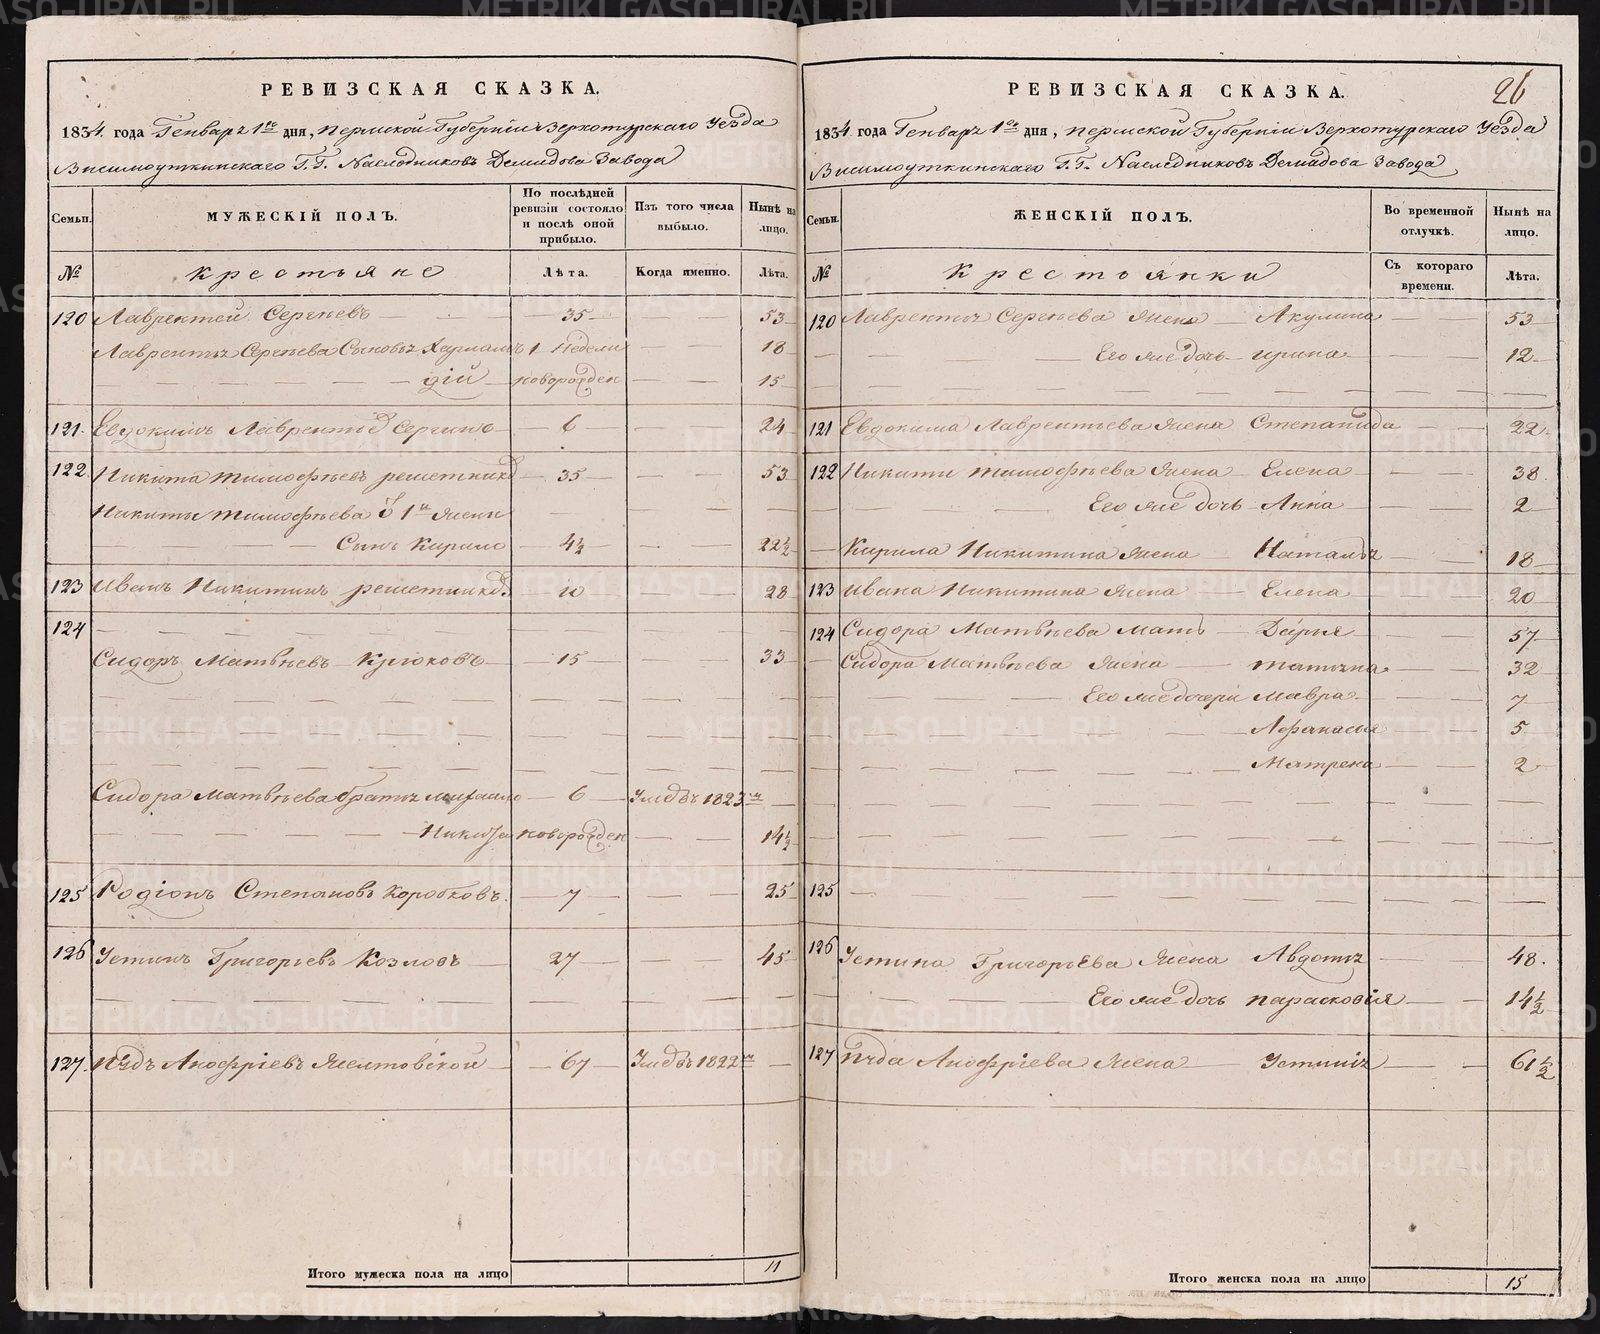 РЕВИЗСКАЯ СКАЗКА.
1834. года Генваря 1го дня, Пермской Губернiи Верхотурскаго Уезда
Висимоуткинскаго Г.Г. Наследниковъ Демидова Завода
Семьи.
МУЖЕСКІЙ ПОЛЪ.
По послѣдней ревизіи состояло и послѣ оной прибыло.
Изъ того числа выбыло.
Нынѣ на лицо.
№ Крестьяне Лѣта. Когда именно. Лѣта.
120 Лаврентей Сергѣевъ 35 53
Лаврентья Сергѣева Сыновья 1 Недели 18
дiй новорожден 15
121. Евдокимъ Лаврентьев 6 24
122. Никита Тимофѣевъ решетников 35 53
Никиты Тимофѣева 1й жены
Сынъ Кирило 4½ 22½
123 Иванъ Никитинъ решетников 10 28
124
Сидоръ Матвѣевъ Крюковъ 15 33
Сидора Матвѣева братья михаило 6 Умеръ 1823м
новорожден 14½
125 Родiонъ Степановъ Коробковъ. 7 25
126 Устинъ Григорьевъ Козловъ 27 45
127. Анофрiевъ Желтовской 67 Умеръ 1822
Итого мужеска пола на лицо 11
РЕВИЗСКАЯ СКАЗКА. 26
1834. года Генваря 1го дня, Пермской Губернiи Верхотурскаго Уезда
Висимоуткинскаго Г.Г. Наследниковъ Демидова Завода
Семьи.
ЖЕНСКІЙ ПОЛЪ.
Во временной отлучкѣ.
Нынѣ на лицо.
№ Крестьянки Съ котораго времени. Лѣта.
120 Лаврентья Сергѣева жена Акулина 53
Его же дочь Ирина 12
121 Евдокима Лаврентьева жена Степанида 22
122 Никиты Тимофѣева жена Елена 38.
Его же дочь Анна 2
Кирила Никитина жена Наталья 18
123 Ивана Никитина жена Елена 20
124 Сидора Матвѣева мать Дарья 57
Сидора Матвѣева жена Татьяна 32
Его же дочери Мавра 7
Афанасья 5
Матрена 2
125
126 Устина Григорьева жена Авдотья 48.
Его же дочь Парасковiя 14½
127 Анофрiева жена Устинiя 61½
Итого женска пола на лицо 15
METRIKI.GASO-URAL.RU